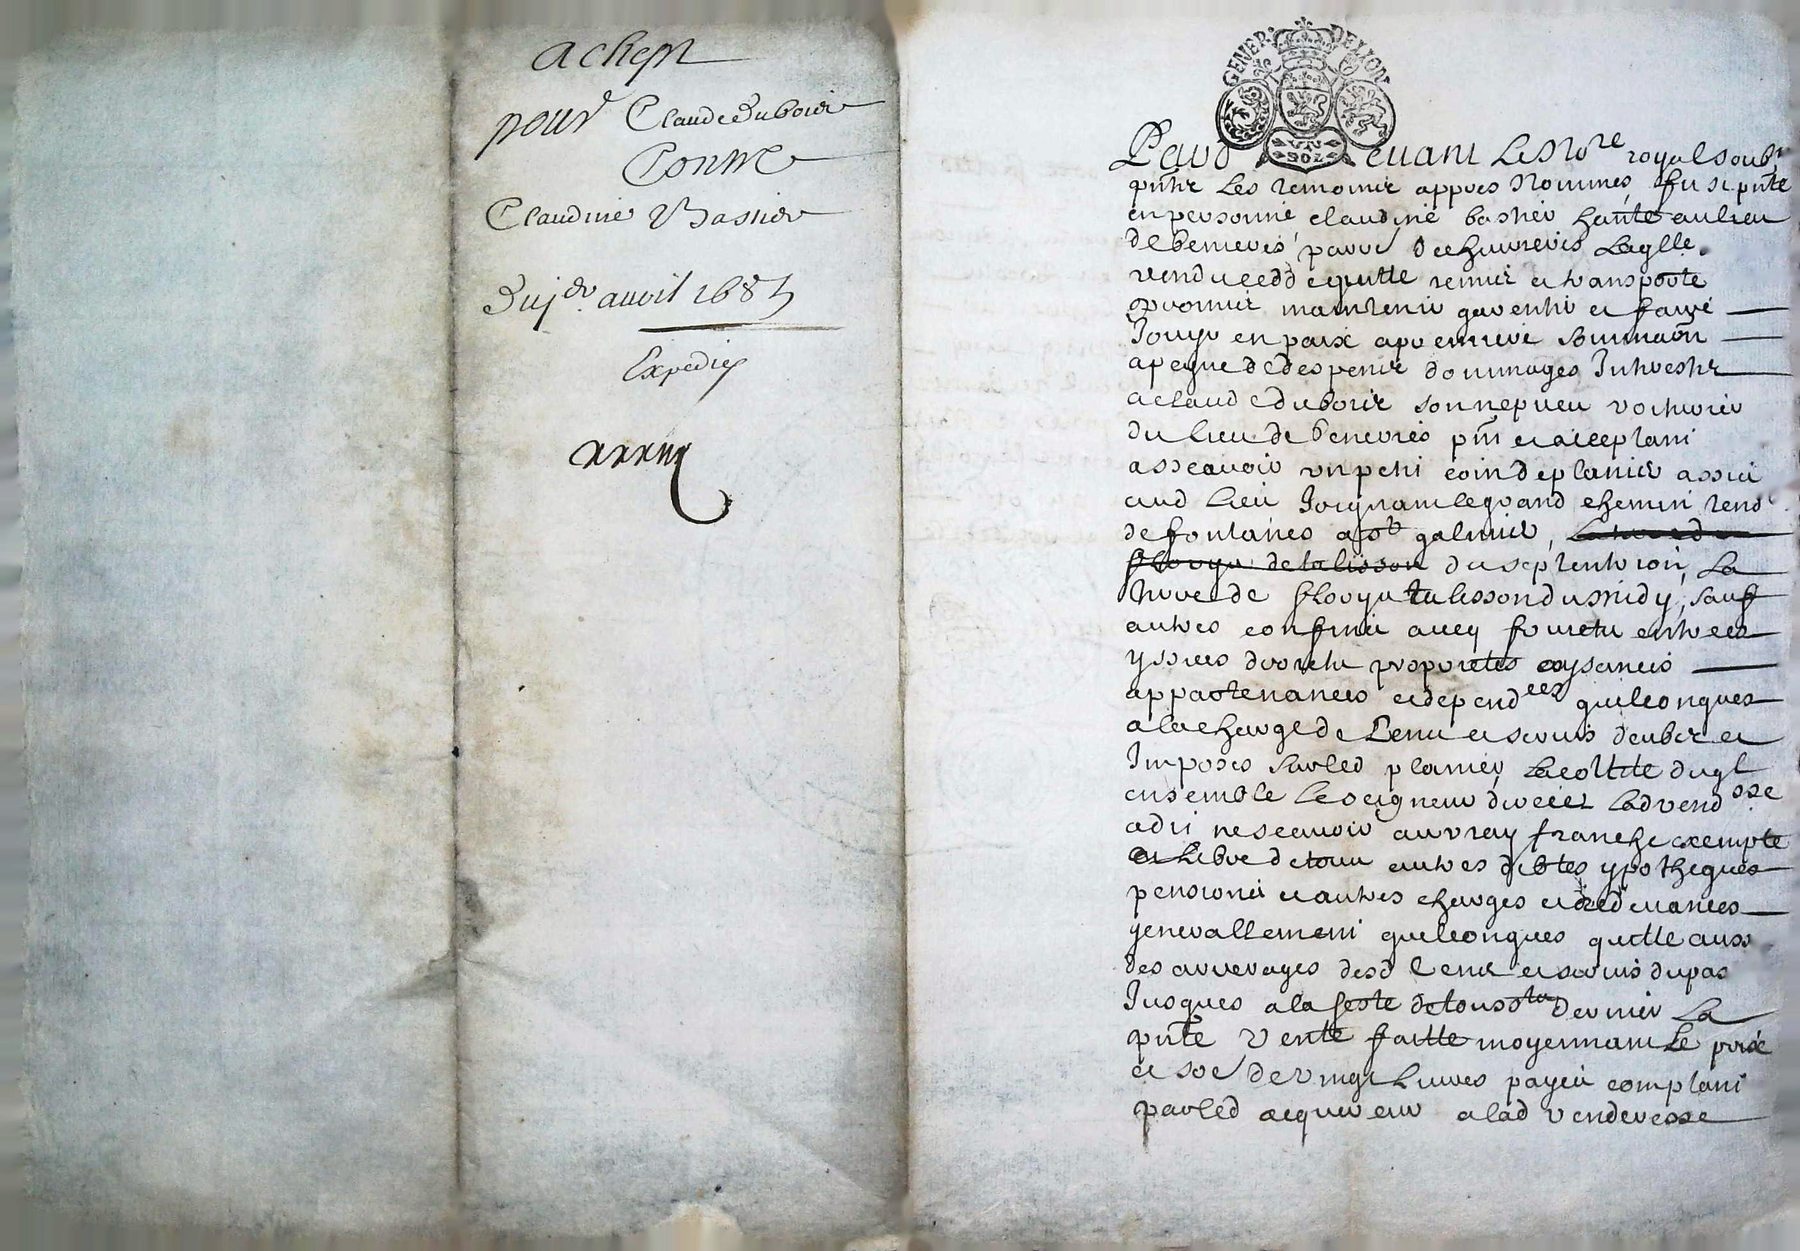 achept
pour Claude Dubois
Contre
Claudine Bastier
Du j.er auvil 1685
Expedié
GENER DE LION
UN SOL
Pard evant Le No.re royal soub.
pnts Les temoins appres Nommes, fust pnte
en personne claudine bastier hante au lieu
de benevis parr. de chevrieres Laqlle.
vend cedde quitte remet et transporte
promet maintenir garentir et faire
Jouyr en paix a premiere Sommaon
a peyne de despens dommages Interests
a claude dubois son nepveu voiturier
du lieu de benevies pnt et acceptant
asscavoir un petit coin de planier assis
aud lieu Joignant le grand chemin tend.
de fontanes a St galmier,
du septentrion, La
terre de fleury talisson du midy, sauf
autres confins avecq fonds entrees
yssues droits proprietes aysances
appartenances et dependces quelconques
a la charge de Cens et servis deubs et
Imposes sur led planier, la cottite duql
ensemble le seigneur direct lad vend sse
a dit ne scavoir au vray franche exempte
et Libre de tous autres debtes ypotheques
pensions et autres charges et redevances
generallement quelconques quitte auss
des arrerages desd Cens et servis du pas
Jusques a la feste de touss.ts dernier La
pnte Vente faitte moyennant Le prix
et soe de vingt Livres payes comptant
par led acquereur a lad venderesse